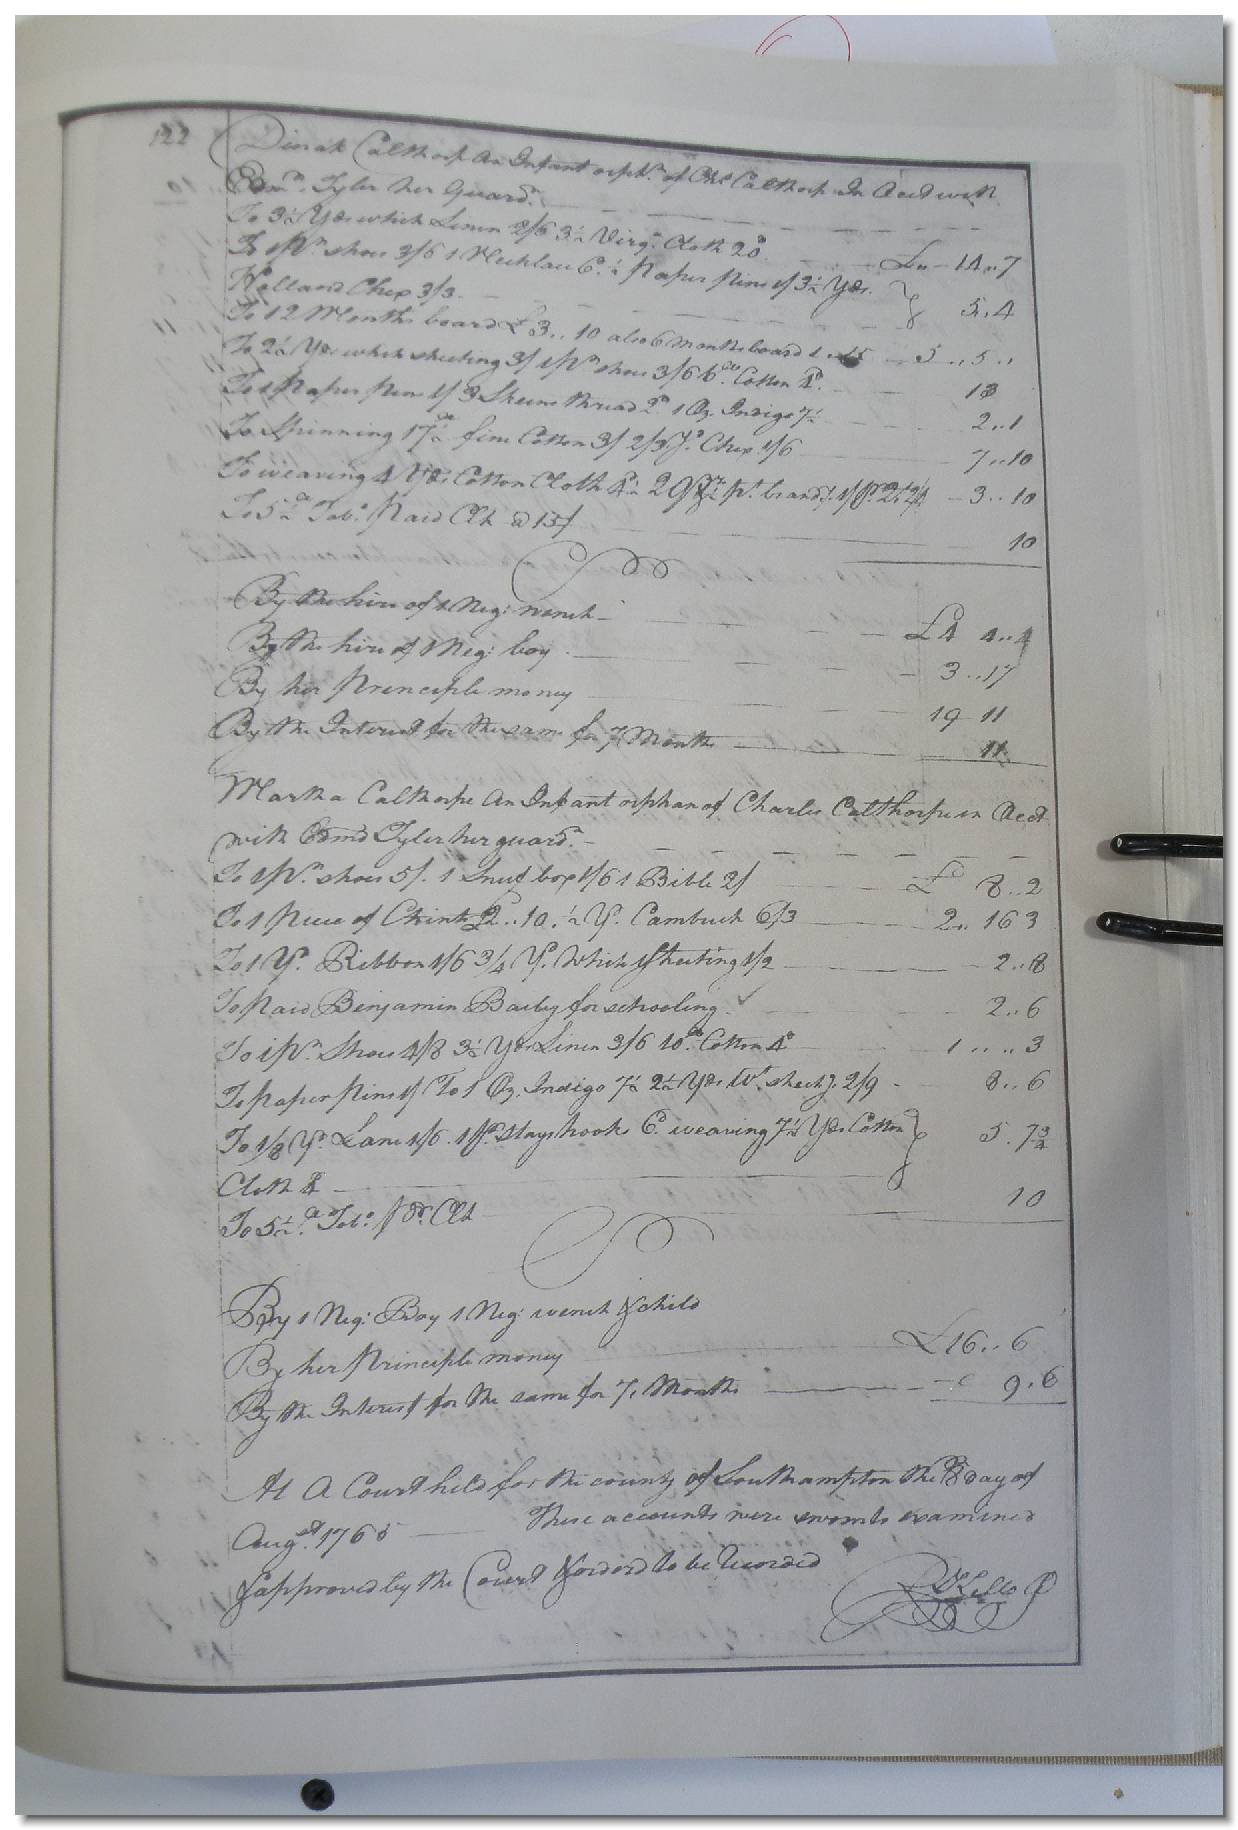 122
Dinah Calthorp An Infant orphn. of Chs. Calthorp In Acct with
Edmd. Tyler her Guardn.
To 3½ Yds which Linen 2/6 3½ Virga. Cloth 20d £ " 14 " 7
To 1 Pr. shoes 3/6 1 Necklace 6d. ½ Paper Pins 1/ 3½ Yds.
Holland Chex 3/3 } 5 .. 4
To 12 Months board £3 .. 10 also 6 months board 1 .. 15 5 .. 5 ..
To 2½ Yds which sheeting 3/ 1 Pr shoes 3/6 6 Cotton 18
To 1 Paper Pins 1/ 3 Skeins thread 2d. 1 Oz. Indigo 7½ 2 .. 1
To Spinning 17½ fine Cotton 3/ 2/3 Yd. Chex 1/6 7 .. 10
To weaving 4 Yds Cotton Cloth 3 .. 10
To 5 Tobo. Paid Clk @ 15/ 10
By the hire of 1 Neg: wench £4 4 .. 4
By the hire of 1 Neg: boy 3 .. 17
By her Principle money 19 11
By the Interest for the same for 7 Months 11
Martha Calthorpe An Infant orphan of Charles Calthorpe in Acct
with Edmd Tyler her guardn.
To 1 Pr. shoes 5/. 1 Snuf box 1/6 1 Bible 2/ £ 8 .. 2
To 1 Piece of Chints £2 .. 10 . ½ Yd. Cambrick 6/3 2 .. 16 3
To 1 Yd. Ribbon 1/6 3/4 Yd. Which Sheeting 1/2 2 .. 8
To Paid Benjamin Bailey for schooling 2 .. 6
To 1 Pr. Shoes 4/8 3½ Yds Linen 3/6 10 Cotton 4d 1 .. .. 3
To Paper Pins 1/ To 1 Oz. Indigo 7½ 2½ Yds Wt. sheetg. 2/9 8 .. 6
To 1/8 Yd. Lawn 1/6. 1 Pr. Stays hooks 6d. weaving 7½ Yds Cotton } 5 . 7¾
Cloth
To 5½ Tobo. Pd. Clk 10
By 1 Neg: Boy 1 Neg: wench & child
By her Principle money £16 .. 6
By the Interest for the same for 7 Months 9 . 6
At A Court held for the county of Southampton the 8 day of
Augst. 1765 These accounts were sworn to examined
& approved by the Court & orderd to be recorded
R Kello